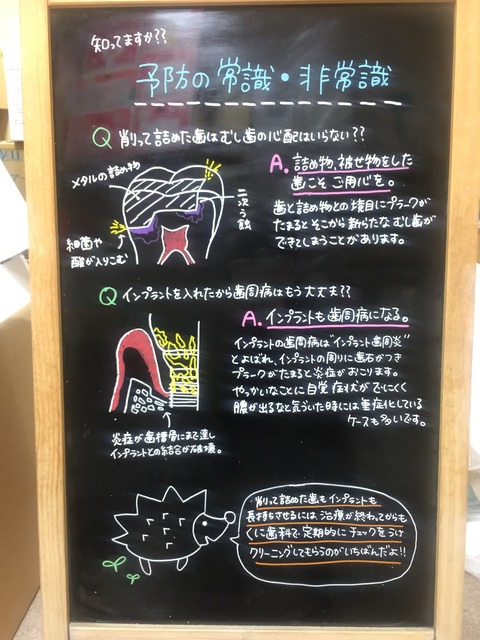 知ってますか??
予防の常識・非常識
Q 削って詰めた歯はむし歯の心配はいらない??
メタルの詰め物
二次う蝕
細菌や
酸が入りこむ
A. 詰め物、被せ物をした
歯こそご用心を。
歯と詰め物との境目にプラークが
たまるとそこから新らたなむし歯が
できてしまうことがあります。
Q インプラントを入れたから歯周病はもう大丈夫??
A. インプラントも歯周病になる。
インプラントの歯周病は"インプラント歯周炎"
とよばれ、インプラントの周りに歯石がつき
プラークがたまると炎症がおこります。
やっかいなことに自覚症状がでにくく
膿が出るなど気づいた時には重症化している
ケースも多いです。
炎症が歯槽骨にまで達し
インプラントとの結合が破壊。
削って詰めた歯もインプラントも
長持ちさせるには治療が終わってからも
くに歯科で定期的にチェックをうけ
クリーニングしてもらうのがいちばんだよ!!